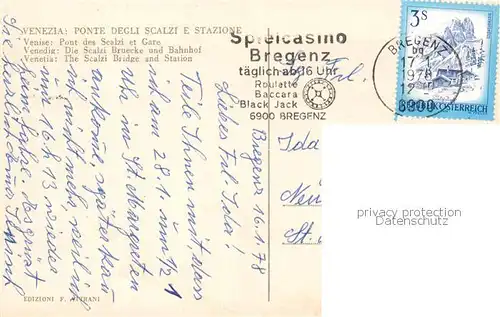 VENEZIA: PONTE DEGLI SCALZI E STAZIONE
Venise: Pont des Scalzi et Gare
Venedig: Die Scalzi Bruecke und Bahnhof
Venetia: The Scalzi Bridge and Station
Spielcasino
Bregenz
täglich ab 16 Uhr
Roulette
Baccara
Black Jack
6900 BREGENZ
3S
BREGENZ
1978
6900
ÖSTERREICH
Bregenz 16.1.78
Liebes Frl Ida!
Teile Ihnen mit, dass
ich am 28.1. um 1/2 1
Uhr in St. Margreten
ankome, später kan
ich nicht mehr, weil ich
um 13 wieder
Frl.
Ida
St.
privacy protection
Datenschutz
EDIZIONI F.